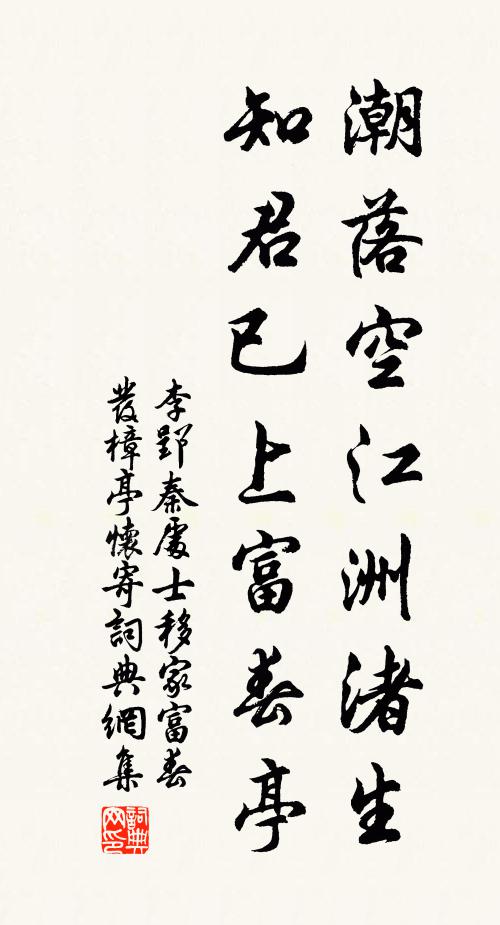 潮落空江洲渚生
知君已上富春亭
李郢秦處士移家富春
發樟亭懷寄詞典網集
詞典
网印